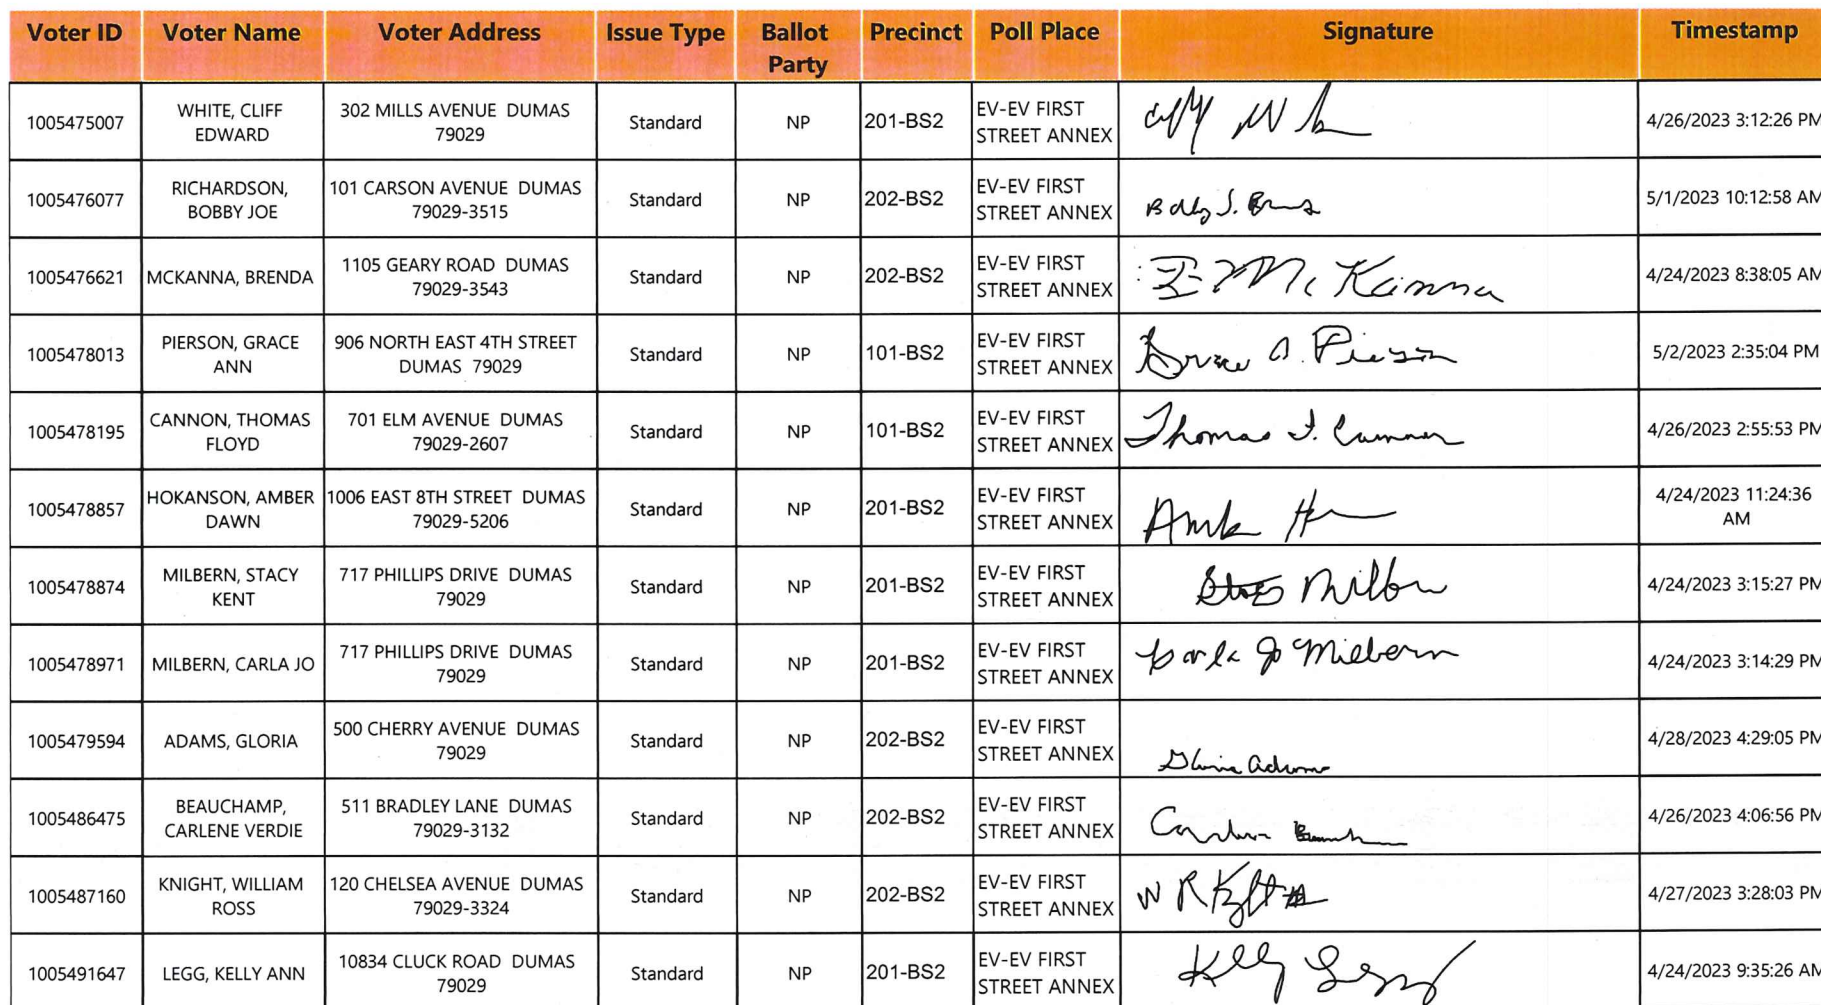 Voter ID Voter Name Voter Address Issue Type Ballot Party Precinct Poll Place Signature Timestamp
1005475007 WHITE, CLIFF EDWARD 302 MILLS AVENUE DUMAS 79029 Standard NP 201-BS2 EV-EV FIRST STREET ANNEX 4/26/2023 3:12:26 PM
1005476077 RICHARDSON, BOBBY JOE 101 CARSON AVENUE DUMAS 79029-3515 Standard NP 202-BS2 EV-EV FIRST STREET ANNEX 5/1/2023 10:12:58 AM
1005476621 MCKANNA, BRENDA 1105 GEARY ROAD DUMAS 79029-3543 Standard NP 202-BS2 EV-EV FIRST STREET ANNEX McKanna 4/24/2023 8:38:05 AM
1005478013 PIERSON, GRACE ANN 906 NORTH EAST 4TH STREET DUMAS 79029 Standard NP 101-BS2 EV-EV FIRST STREET ANNEX Grace A. Pierson 5/2/2023 2:35:04 PM
1005478195 CANNON, THOMAS FLOYD 701 ELM AVENUE DUMAS 79029-2607 Standard NP 101-BS2 EV-EV FIRST STREET ANNEX Thomas F. Cannon 4/26/2023 2:55:53 PM
1005478857 HOKANSON, AMBER DAWN 1006 EAST 8TH STREET DUMAS 79029-5206 Standard NP 201-BS2 EV-EV FIRST STREET ANNEX 4/24/2023 11:24:36 AM
1005478874 MILBERN, STACY KENT 717 PHILLIPS DRIVE DUMAS 79029 Standard NP 201-BS2 EV-EV FIRST STREET ANNEX 4/24/2023 3:15:27 PM
1005478971 MILBERN, CARLA JO 717 PHILLIPS DRIVE DUMAS 79029 Standard NP 201-BS2 EV-EV FIRST STREET ANNEX Carla Jo Milbern 4/24/2023 3:14:29 PM
1005479594 ADAMS, GLORIA 500 CHERRY AVENUE DUMAS 79029 Standard NP 202-BS2 EV-EV FIRST STREET ANNEX Gloria Adams 4/28/2023 4:29:05 PM
1005486475 BEAUCHAMP, CARLENE VERDIE 511 BRADLEY LANE DUMAS 79029-3132 Standard NP 202-BS2 EV-EV FIRST STREET ANNEX 4/26/2023 4:06:56 PM
1005487160 KNIGHT, WILLIAM ROSS 120 CHELSEA AVENUE DUMAS 79029-3324 Standard NP 202-BS2 EV-EV FIRST STREET ANNEX W R 4/27/2023 3:28:03 PM
1005491647 LEGG, KELLY ANN 10834 CLUCK ROAD DUMAS 79029 Standard NP 201-BS2 EV-EV FIRST STREET ANNEX Kelly Legg 4/24/2023 9:35:26 AM